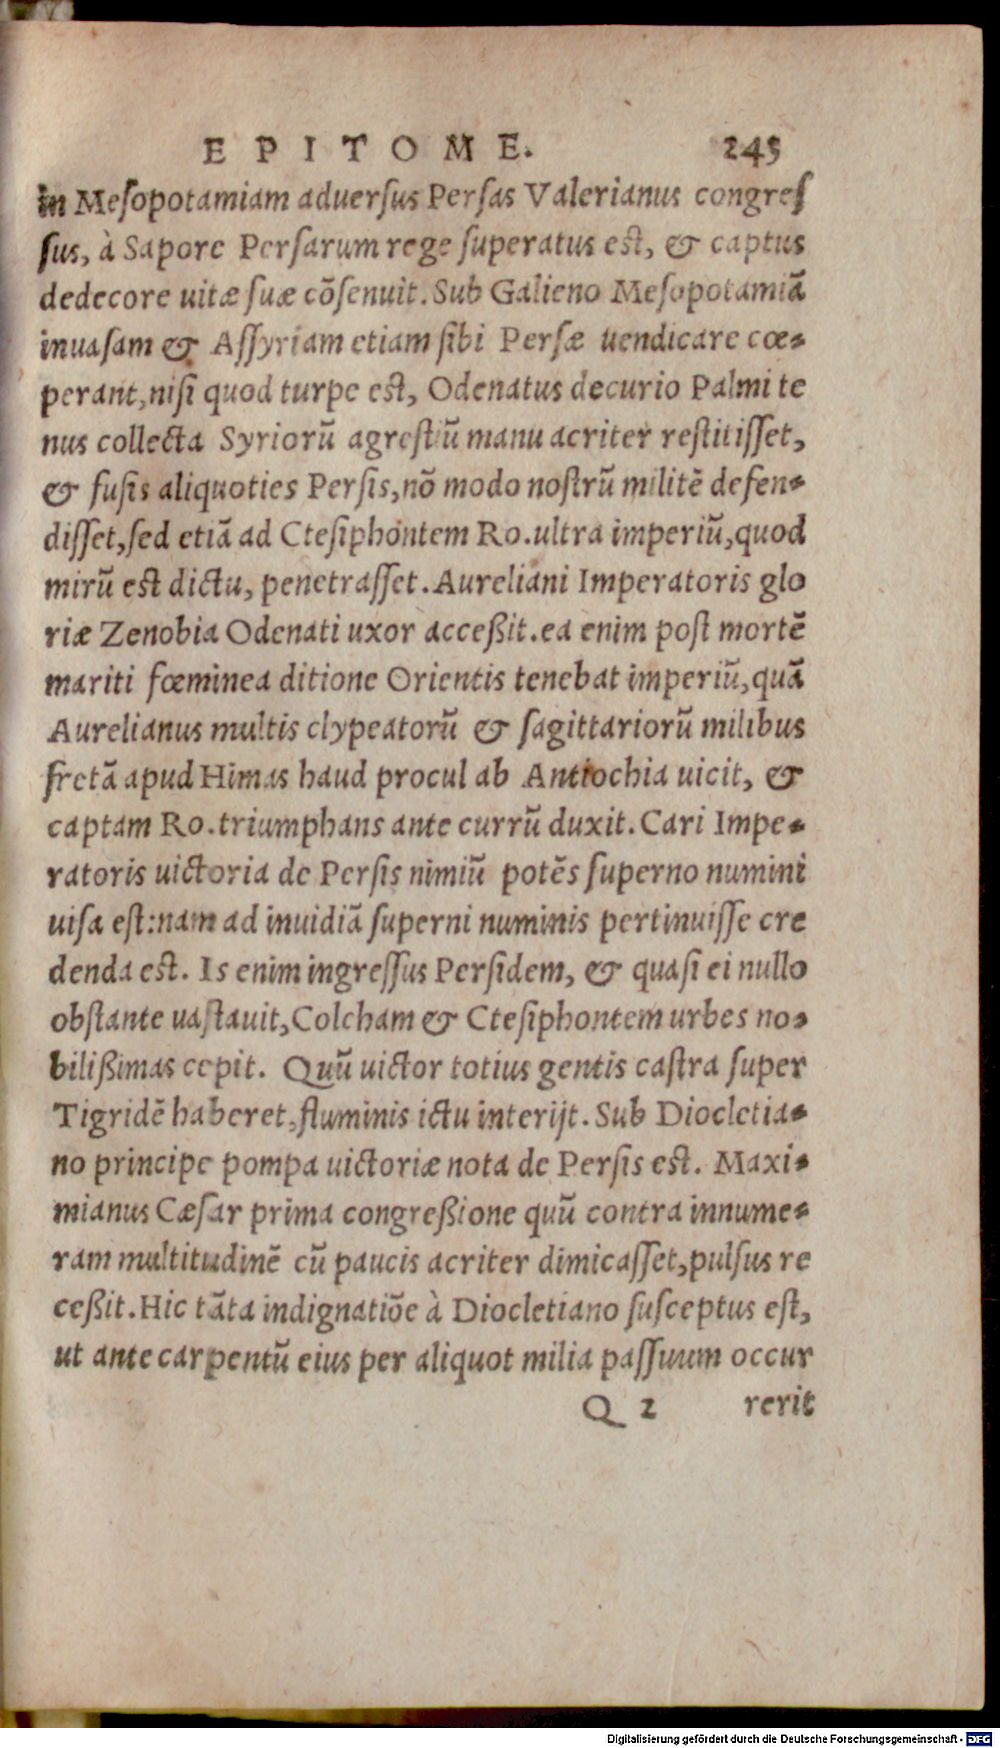 EPITOME. 245
in Meſopotamiam aduerſus Perſas Valerianus congreſ
ſus, à Sapore Perſarum rege ſuperatus est, & captus
dedecore uitæ ſuæ cõſenuit. Sub Galieno Meſopotamiã
inuaſam & Aſſyriam etiam ſibi Perſæ uendicare cœ-
perant, niſi quod turpe est, Odenatus decurio Palmi te
nus collecta Syriorũ agreſtiũ manu acriter reſtitiſſet,
& fuſis aliquoties Perſis, nõ modo noſtrũ militẽ defen-
diſſet, ſed etiã ad Cteſiphontem Ro. ultra imperiũ, quod
mirũ est dictu, penetraſſet. Aureliani Imperatoris glo
riæ Zenobia Odenati uxor acceßit. ea enim poſt mortẽ
mariti fœminea ditione Orientis tenebat imperiũ, quã
Aurelianus multis clypeatorũ & ſagittariorũ milibus
fretã apud Himas haud procul ab Antiochia uicit, &
captam Ro. triumphans ante currũ duxit. Cari Impe-
ratoris uictoria de Perſis nimiũ potẽs ſuperno numini
uiſa eſt: nam ad inuidiã ſuperni numinis pertinuiſſe cre
denda est. Is enim ingreſſus Perſidem, & quaſi ei nullo
obſtante uaſtauit, Colcham & Cteſiphontem urbes no-
bilißimas cepit. Quũ uictor totius gentis caſtra ſuper
Tigridẽ haberet, fluminis ictu interijt. Sub Diocletia-
no principe pompa uictoriæ nota de Perſis est. Maxi-
mianus Cæſar prima congreßione quũ contra innume-
ram multitudinẽ cũ paucis acriter dimicaſſet, pulſus re
ceßit. Hic tãta indignatiõe à Diocletiano ſuſceptus est,
ut ante carpentũ eius per aliquot milia paſſuum occur
Q 2 rerit
Digitalisierung gefördert durch die Deutsche Forschungsgemeinschaft - DFG